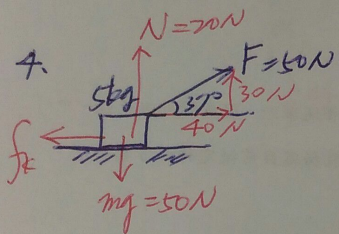 N=20N
4.
F=50N
5kg
37°
30N
40N
fk
mg=50N